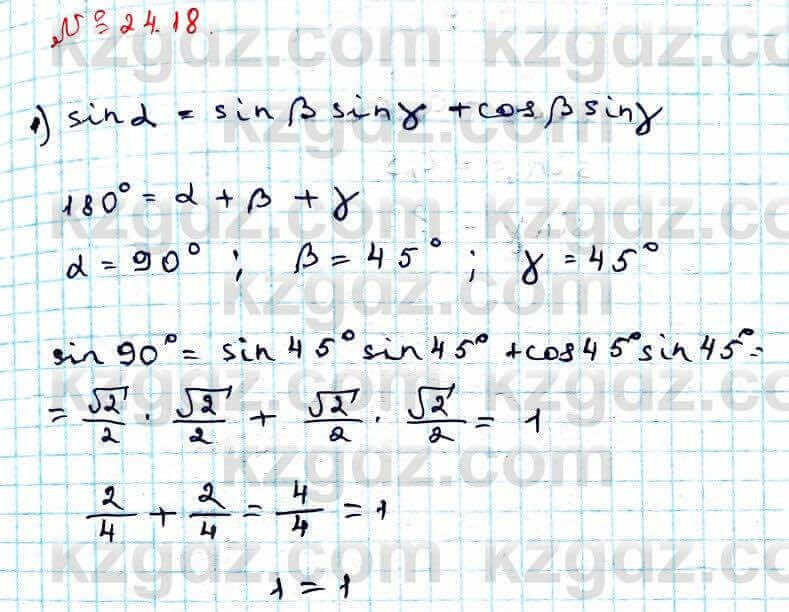 № 24.18.
1) sin α = sin β sin γ + cos β sin γ
180° = α + β + γ
α = 90° ; β = 45° ; γ = 45°
sin 90° = sin 45° sin 45° + cos 45° sin 45° =
= √2/2 · √2/2 + √2/2 · √2/2 = 1
2/4 + 2/4 = 4/4 = 1
1 = 1
kzgdz.com